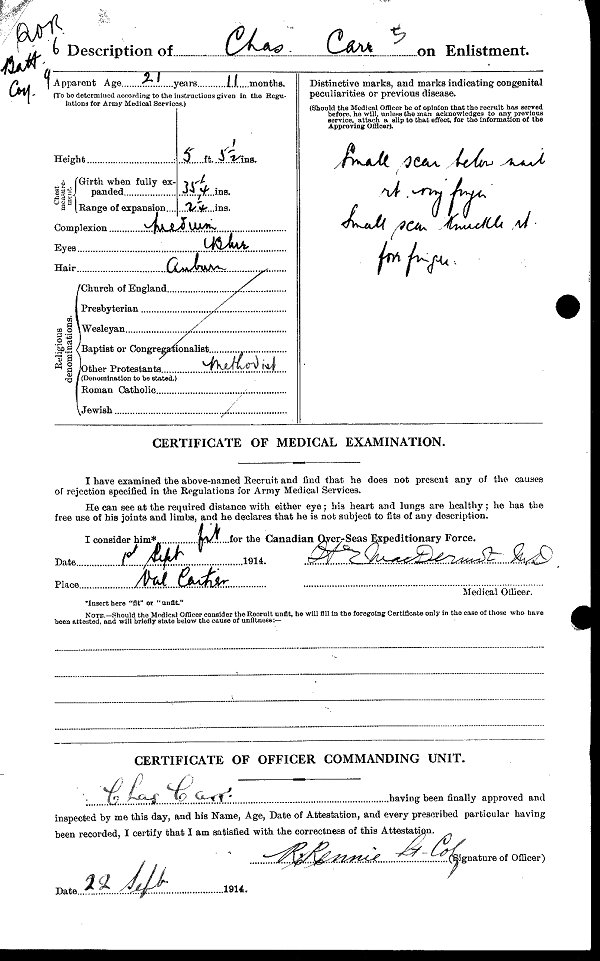 QOR
Batt. 6
Coy. 9
Description of Chas. Carr on Enlistment.
Apparent Age 21 years 11 months.
(To be determined according to the instructions given in the Regu-
lations for Army Medical Services.)
Height 5 ft. 5½ ins.
Chest measure-
ment.
Girth when fully ex-
panded 35¼ ins.
Range of expansion 2¼ ins.
Complexion Medium
Eyes Blue
Hair Auburn
Religious
denominations.
Church of England
Presbyterian
Wesleyan
Baptist or Congregationalist
Other Protestants Methodist
(Denomination to be stated.)
Roman Catholic
Jewish
Distinctive marks, and marks indicating congenital
peculiarities or previous disease.
(Should the Medical Officer be of opinion that the recruit has served
before, he will, unless the man acknowledges to any previous
service, attach a slip to that effect, for the information of the
Approving Officer).
Small scar below nail
rt. ring finger
Small scar knuckle rt.
fore finger.
CERTIFICATE OF MEDICAL EXAMINATION.
I have examined the above-named Recruit and find that he does not present any of the causes
of rejection specified in the Regulations for Army Medical Services.
He can see at the required distance with either eye; his heart and lungs are healthy; he has the
free use of his joints and limbs, and he declares that he is not subject to fits of any description.
I consider him* fit for the Canadian Over-Seas Expeditionary Force.
Date 1st Sept 1914.
MacDermot M.D.
Place Val Cartier
Medical Officer.
*Insert here "fit" or "unfit."
NOTE.—Should the Medical Officer consider the Recruit unfit, he will fill in the foregoing Certificate only in the case of those who have
been attested, and will briefly state below the cause of unfitness:—
CERTIFICATE OF OFFICER COMMANDING UNIT.
Chas Carr. having been finally approved and
inspected by me this day, and his Name, Age, Date of Attestation, and every prescribed particular having
been recorded, I certify that I am satisfied with the correctness of this Attestation.
R Rennie Lt-Col (Signature of Officer)
Date 22 Sept 1914.